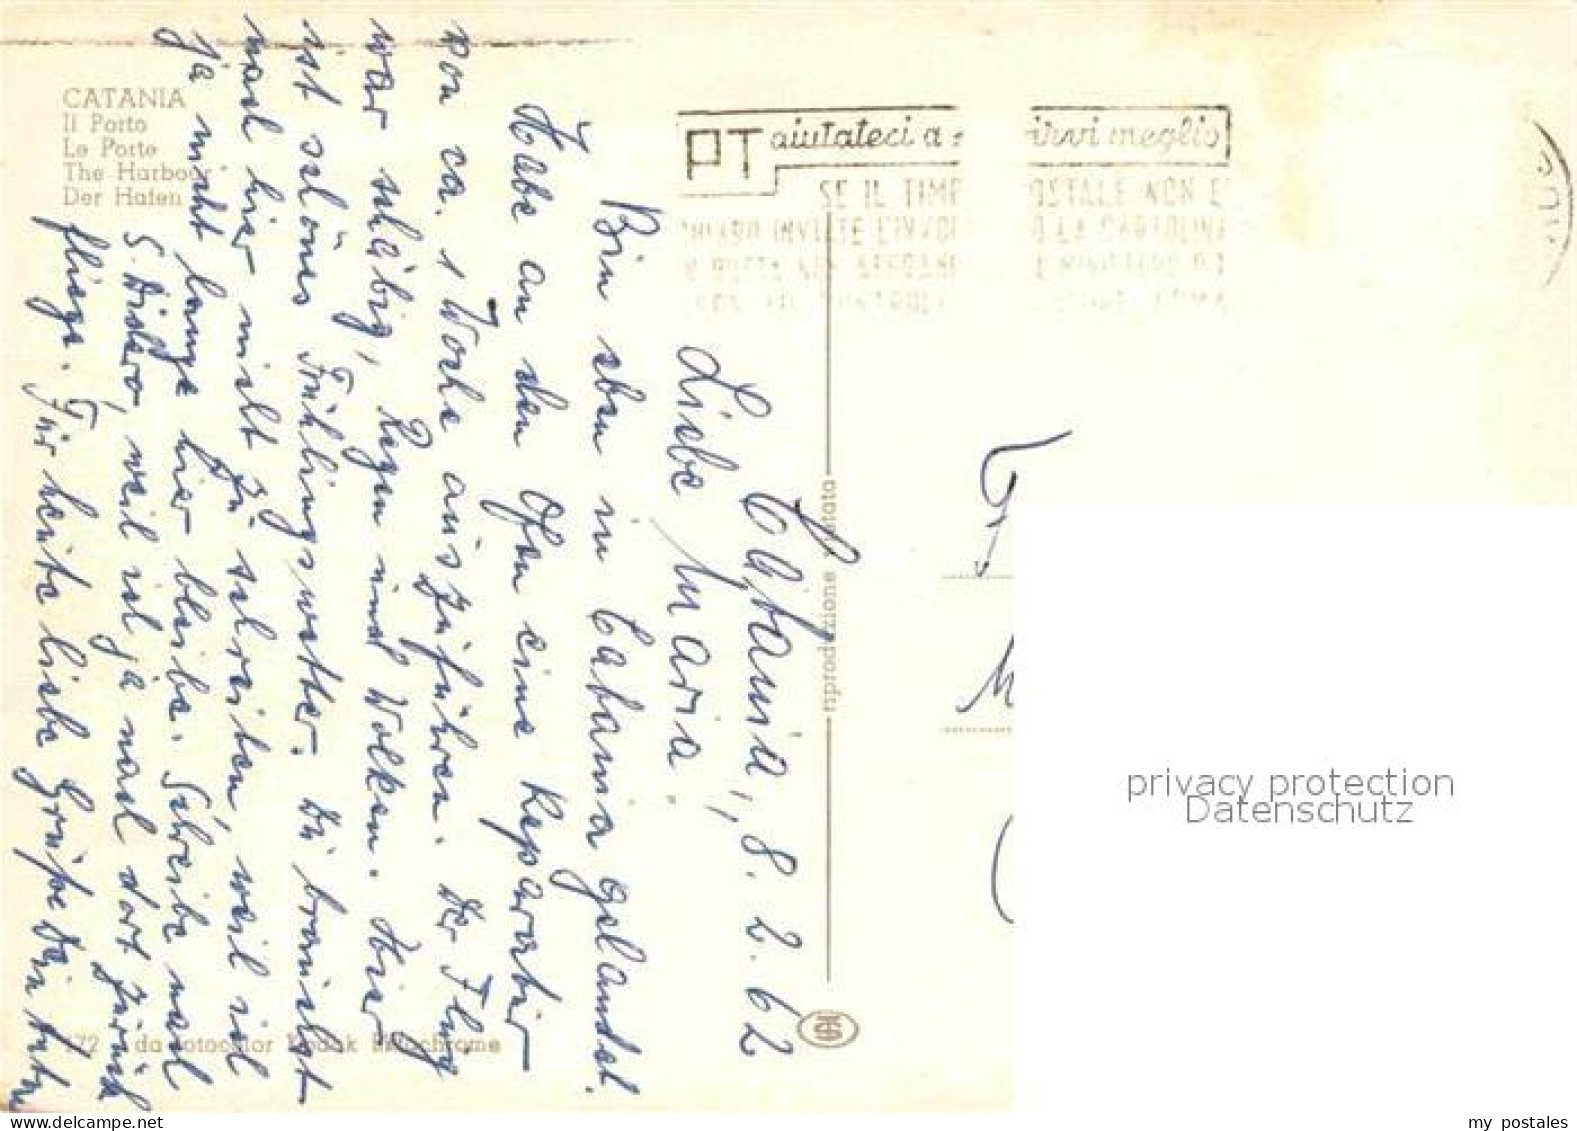 CATANIA
Il Porto
Le Porte
The Harbour
Der Hafen
PT aiutateci a irvi meglio
SE IL TIMB OSTALE NON E'
Catania, 8. 2. 62
Liebe Maria.
Bin eben in Catania gelandet.
Habe an den Ofen eine Reparatur
von ca. 1 Woche auszuführen. Der Flug
war schäbig, Regen und Wolken. Hier
ist schönes Frühlingswetter. Du brauchst
nach hier nicht zu schreiben, weil ich
ja nicht lange hier bleibe. Schreibe nach
S. weil ich ja nach dort zurück
fliege. Für heute liebe Grüsse Dein
riproduzione vietata
172 da fotocolor Kodak Ektachrome
privacy protection
Datenschutz
www.delcampe.net
my_postales